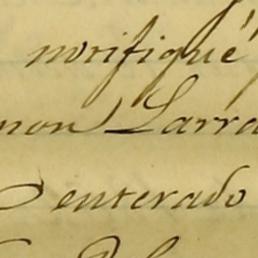 notifiqué
mon Larra
enterado